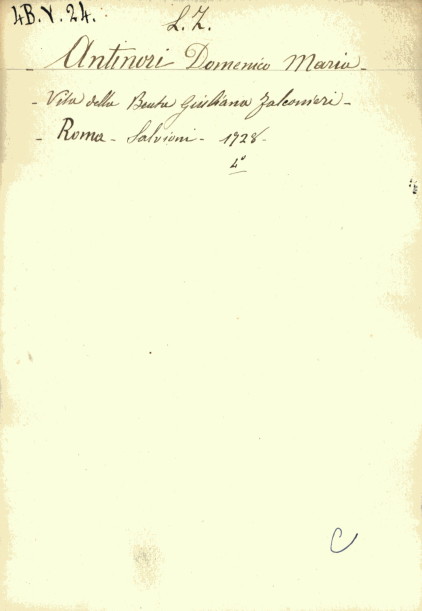 4B.V.24.
L. Z.
Antinori Domenico Maria -
- Vita della Beata Giuliana Falconieri -
- Roma - Salvioni - 1728 -
4°
C